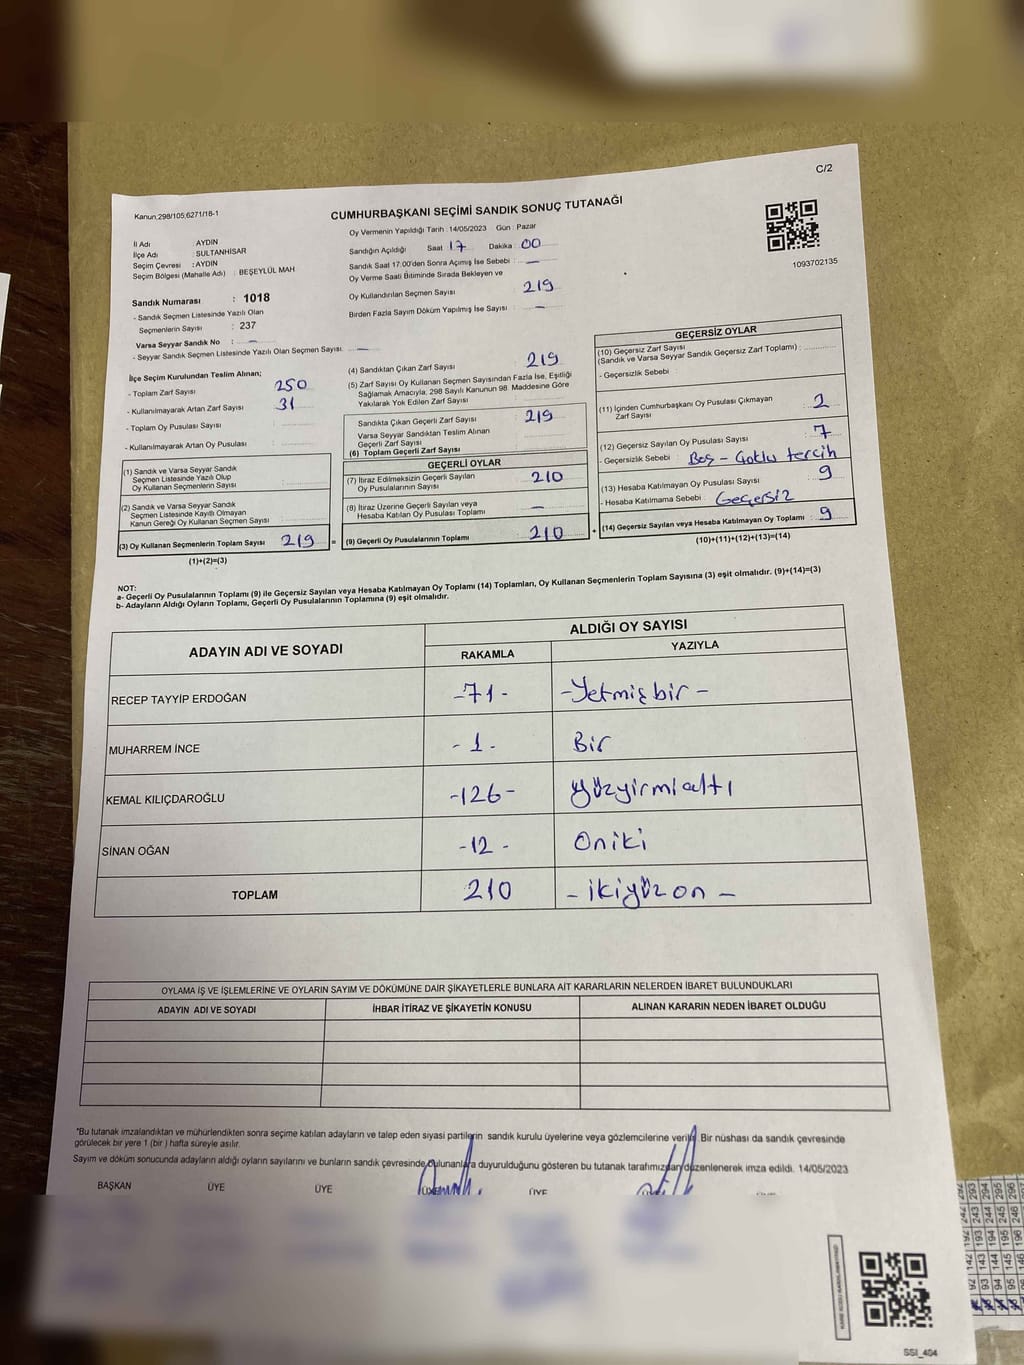 C/2
Kanun,298/105,6271/18-1
CUMHURBAŞKANI SEÇİMİ SANDIK SONUÇ TUTANAĞI
1093702135
İl Adı : AYDIN
İlçe Adı : SULTANHİSAR
Seçim Çevresi : AYDIN
Seçim Bölgesi (Mahalle Adı) : BEŞEYLÜL MAH
Sandık Numarası : 1018
- Sandık Seçmen Listesinde Yazılı Olan
Seçmenlerin Sayısı : 237
Varsa Seyyar Sandık No : —
- Seyyar Sandık Seçmen Listesinde Yazılı Olan Seçmen Sayısı: —
Oy Vermenin Yapıldığı Tarih : 14/05/2023 Gün : Pazar
Sandığın Açıldığı Saat 17 Dakika : 00
Sandık Saat 17:00'den Sonra Açımış İse Sebebi : —
Oy Verme Saati Bitiminde Sırada Bekleyen ve
Oy Kullandırılan Seçmen Sayısı 219
Birden Fazla Sayım Döküm Yapılmış İse Sayısı : —
İlçe Seçim Kurulundan Teslim Alınan;
- Toplam Zarf Sayısı 250
- Kullanılmayarak Artan Zarf Sayısı 31
- Toplam Oy Pusulası Sayısı
- Kullanılmayarak Artan Oy Pusulası
(1) Sandık ve Varsa Seyyar Sandık
Seçmen Listesinde Yazılı Olup
Oy Kullanan Seçmenlerin Sayısı
(2) Sandık ve Varsa Seyyar Sandık
Seçmen Listesinde Kayıtlı Olmayan
Kanun Gereği Oy Kullanan Seçmen Sayısı
(3) Oy Kullanan Seçmenlerin Toplam Sayısı 219 =
(1)+(2)=(3)
(4) Sandıktan Çıkan Zarf Sayısı 219
(5) Zarf Sayısı Oy Kullanan Seçmen Sayısından Fazla İse, Eşitliği
Sağlamak Amacıyla, 298 Sayılı Kanunun 98. Maddesine Göre
Yakılarak Yok Edilen Zarf Sayısı
Sandıkta Çıkan Geçerli Zarf Sayısı 219
Varsa Seyyar Sandıktan Teslim Alınan
Geçerli Zarf Sayısı
(6) Toplam Geçerli Zarf Sayısı
GEÇERLİ OYLAR
(7) İtiraz Edilmeksizin Geçerli Sayılan
Oy Pusulalarının Sayısı 210
(8) İtiraz Üzerine Geçerli Sayılan veya
Hesaba Katılan Oy Pusulası Toplamı —
(9) Geçerli Oy Pusulalarının Toplamı 210 +
GEÇERSİZ OYLAR
(10) Geçersiz Zarf Sayısı
(Sandık ve Varsa Seyyar Sandık Geçersiz Zarf Toplamı) :
- Geçersizlik Sebebi :
(11) İçinden Cumhurbaşkanı Oy Pusulası Çıkmayan
Zarf Sayısı 2
(12) Geçersiz Sayılan Oy Pusulası Sayısı 7
- Geçersizlik Sebebi : Boş - Çoklu tercih
(13) Hesaba Katılmayan Oy Pusulası Sayısı 9
- Hesaba Katılmama Sebebi : Geçersiz
(14) Geçersiz Sayılan veya Hesaba Katılmayan Oy Toplamı 9
(10)+(11)+(12)+(13)=(14)
NOT:
a- Geçerli Oy Pusulalarının Toplamı (9) ile Geçersiz Sayılan veya Hesaba Katılmayan Oy Toplamı (14) Toplamları, Oy Kullanan Seçmenlerin Toplam Sayısına (3) eşit olmalıdır. (9)+(14)=(3)
b- Adayların Aldığı Oyların Toplamı, Geçerli Oy Pusulalarının Toplamına (9) eşit olmalıdır.
ADAYIN ADI VE SOYADI ALDIĞI OY SAYISI
RAKAMLA YAZIYLA
RECEP TAYYİP ERDOĞAN -71- -Yetmişbir-
MUHARREM İNCE -1- Bir
KEMAL KILIÇDAROĞLU -126- yüzyirmialtı
SİNAN OĞAN -12- Oniki
TOPLAM 210 - ikiyüzon -
OYLAMA İŞ VE İŞLEMLERİNE VE OYLARIN SAYIM VE DÖKÜMÜNE DAİR ŞİKAYETLERLE BUNLARA AİT KARARLARIN NELERDEN İBARET BULUNDUKLARI
ADAYIN ADI VE SOYADI İHBAR İTİRAZ VE ŞİKAYETİN KONUSU ALINAN KARARIN NEDEN İBARET OLDUĞU
*Bu tutanak imzalandıktan ve mühürlendikten sonra seçime katılan adayların ve talep eden siyasi partilerin sandık kurulu üyelerine veya gözlemcilerine verilir. Bir nüshası da sandık çevresinde
görülecek bir yere 1 (bir ) hafta süreyle asılır.
Sayım ve döküm sonucunda adayların aldığı oyların sayılarını ve bunların sandık çevresinde bulunanlara duyurulduğunu gösteren bu tutanak tarafımızdan düzenlenerek imza edildi. 14/05/2023
BAŞKAN ÜYE ÜYE ÜYE
SSI_404